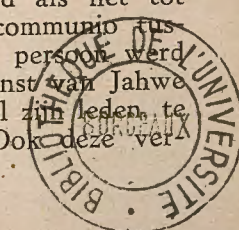 d als het tot
communio tus-
persoon werd
nst van Jahwe
l zijn leden, te
Ook deze ver-
BIBLIOTHEQUE DE L'UNIVERSITE
BORDEAUX